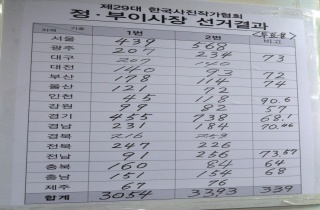 제29대 한국사진작가협회
정·부이사장 선거결과
지역 기호 1번 2번 <투표율> 비고
서울 439 568
광주 207 234 73
대구 207 140
대전 140 93 72
부산 178 114 74
울산 121 72
인천 45 118 90.6
강원 99 82 57
경기 455 738 68.1
경남 231 184 70.46
경북 216 259
전북 247 226
전남 91 256 73.57
충북 160 84 64
충남 151 154 68
제주 67 76
합계 3054 3393 339